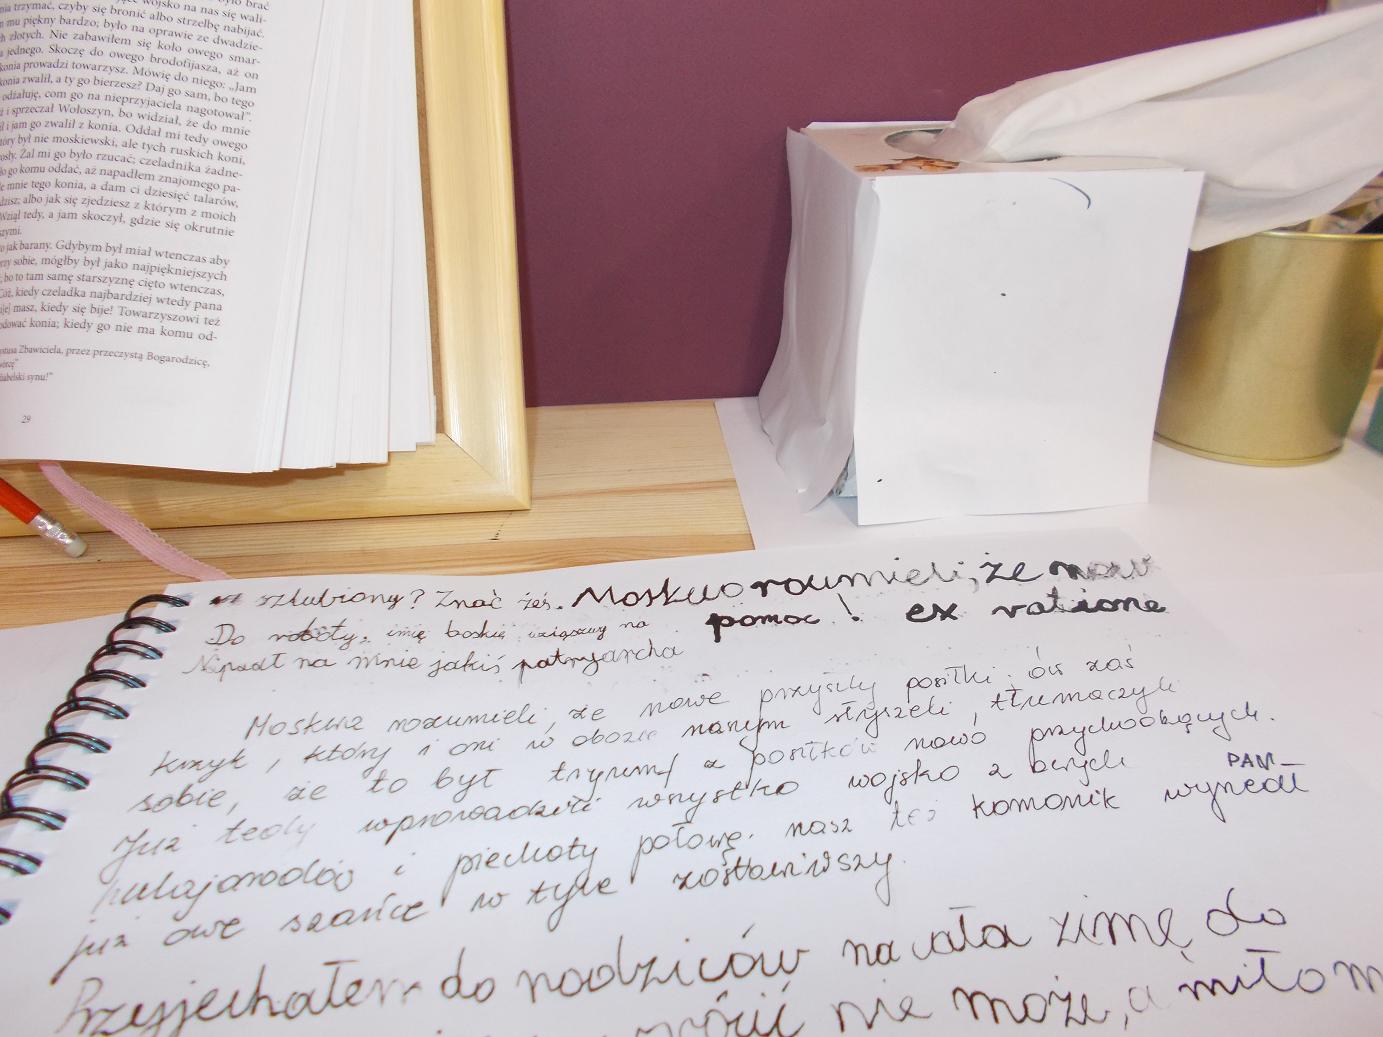 trzymać, czyby się bronić albo strzelbę nabijać.
mu piękny bardzo; było na oprawie ze dwadzie-
złotych. Nie zabawiłem się koło owego smar-
jednego. Skoczę do owego brodofijasza, aż on
konia prowadzi towarzysz. Mówię do niego: „Jam
konia zwalił, a ty go bierzesz? Daj go sam, bo tego
odżałuję, com go na nieprzyjaciela nagotował”.
i sprzeczał Wołoszyn, bo widział, że do mnie
i jam go zwalił z konia. Oddał mi tedy owego
był nie moskiewski, ale tych ruskich koni,
Żal mi go było rzucać; czeladnika żadne-
go komu oddać, aż napadłem znajomego pa-
mnie tego konia, a dam ci dziesięć talarów,
albo jak się zjedziesz z którym z moich
Wziął tedy, a jam skoczył, gdzie się okrutnie
jak barany. Gdybym był miał wtenczas aby
sobie, mógłby był jako najpiękniejszych
bo to tam samę starszyznę cięto wtenczas,
kiedy czeladka najbardziej wtedy pana
masz, kiedy się bije! Towarzyszowi też
konia; kiedy go nie ma komu od-
Zbawiciela, przez przeczystą Bogarodzicę,
synu!”
29
szlubiony? Znać żeś. Moskwa roumieli, że now
Do roboty, imię boskie wziąwszy na pomoc! ex ratione
Napadł na mnie jakiś patryjarcha
Moskwa rozumieli, że nowe przyszły posiłki. ów zaś
krzyk, który i oni w obozie naszym słyszeli, tłumaczyli
sobie, że to był tryumf z posiłków nowo przychodzących.
Już tedy wprowadzili wszystko wojsko z onych
hulajgrodów i piechoty połowę. nasz też komonik wyszedł
PAM-
już owe szańce w tyle zostawiwszy.
Przyjechałem do rodziców na cała zimę, do
nie może, a miłom